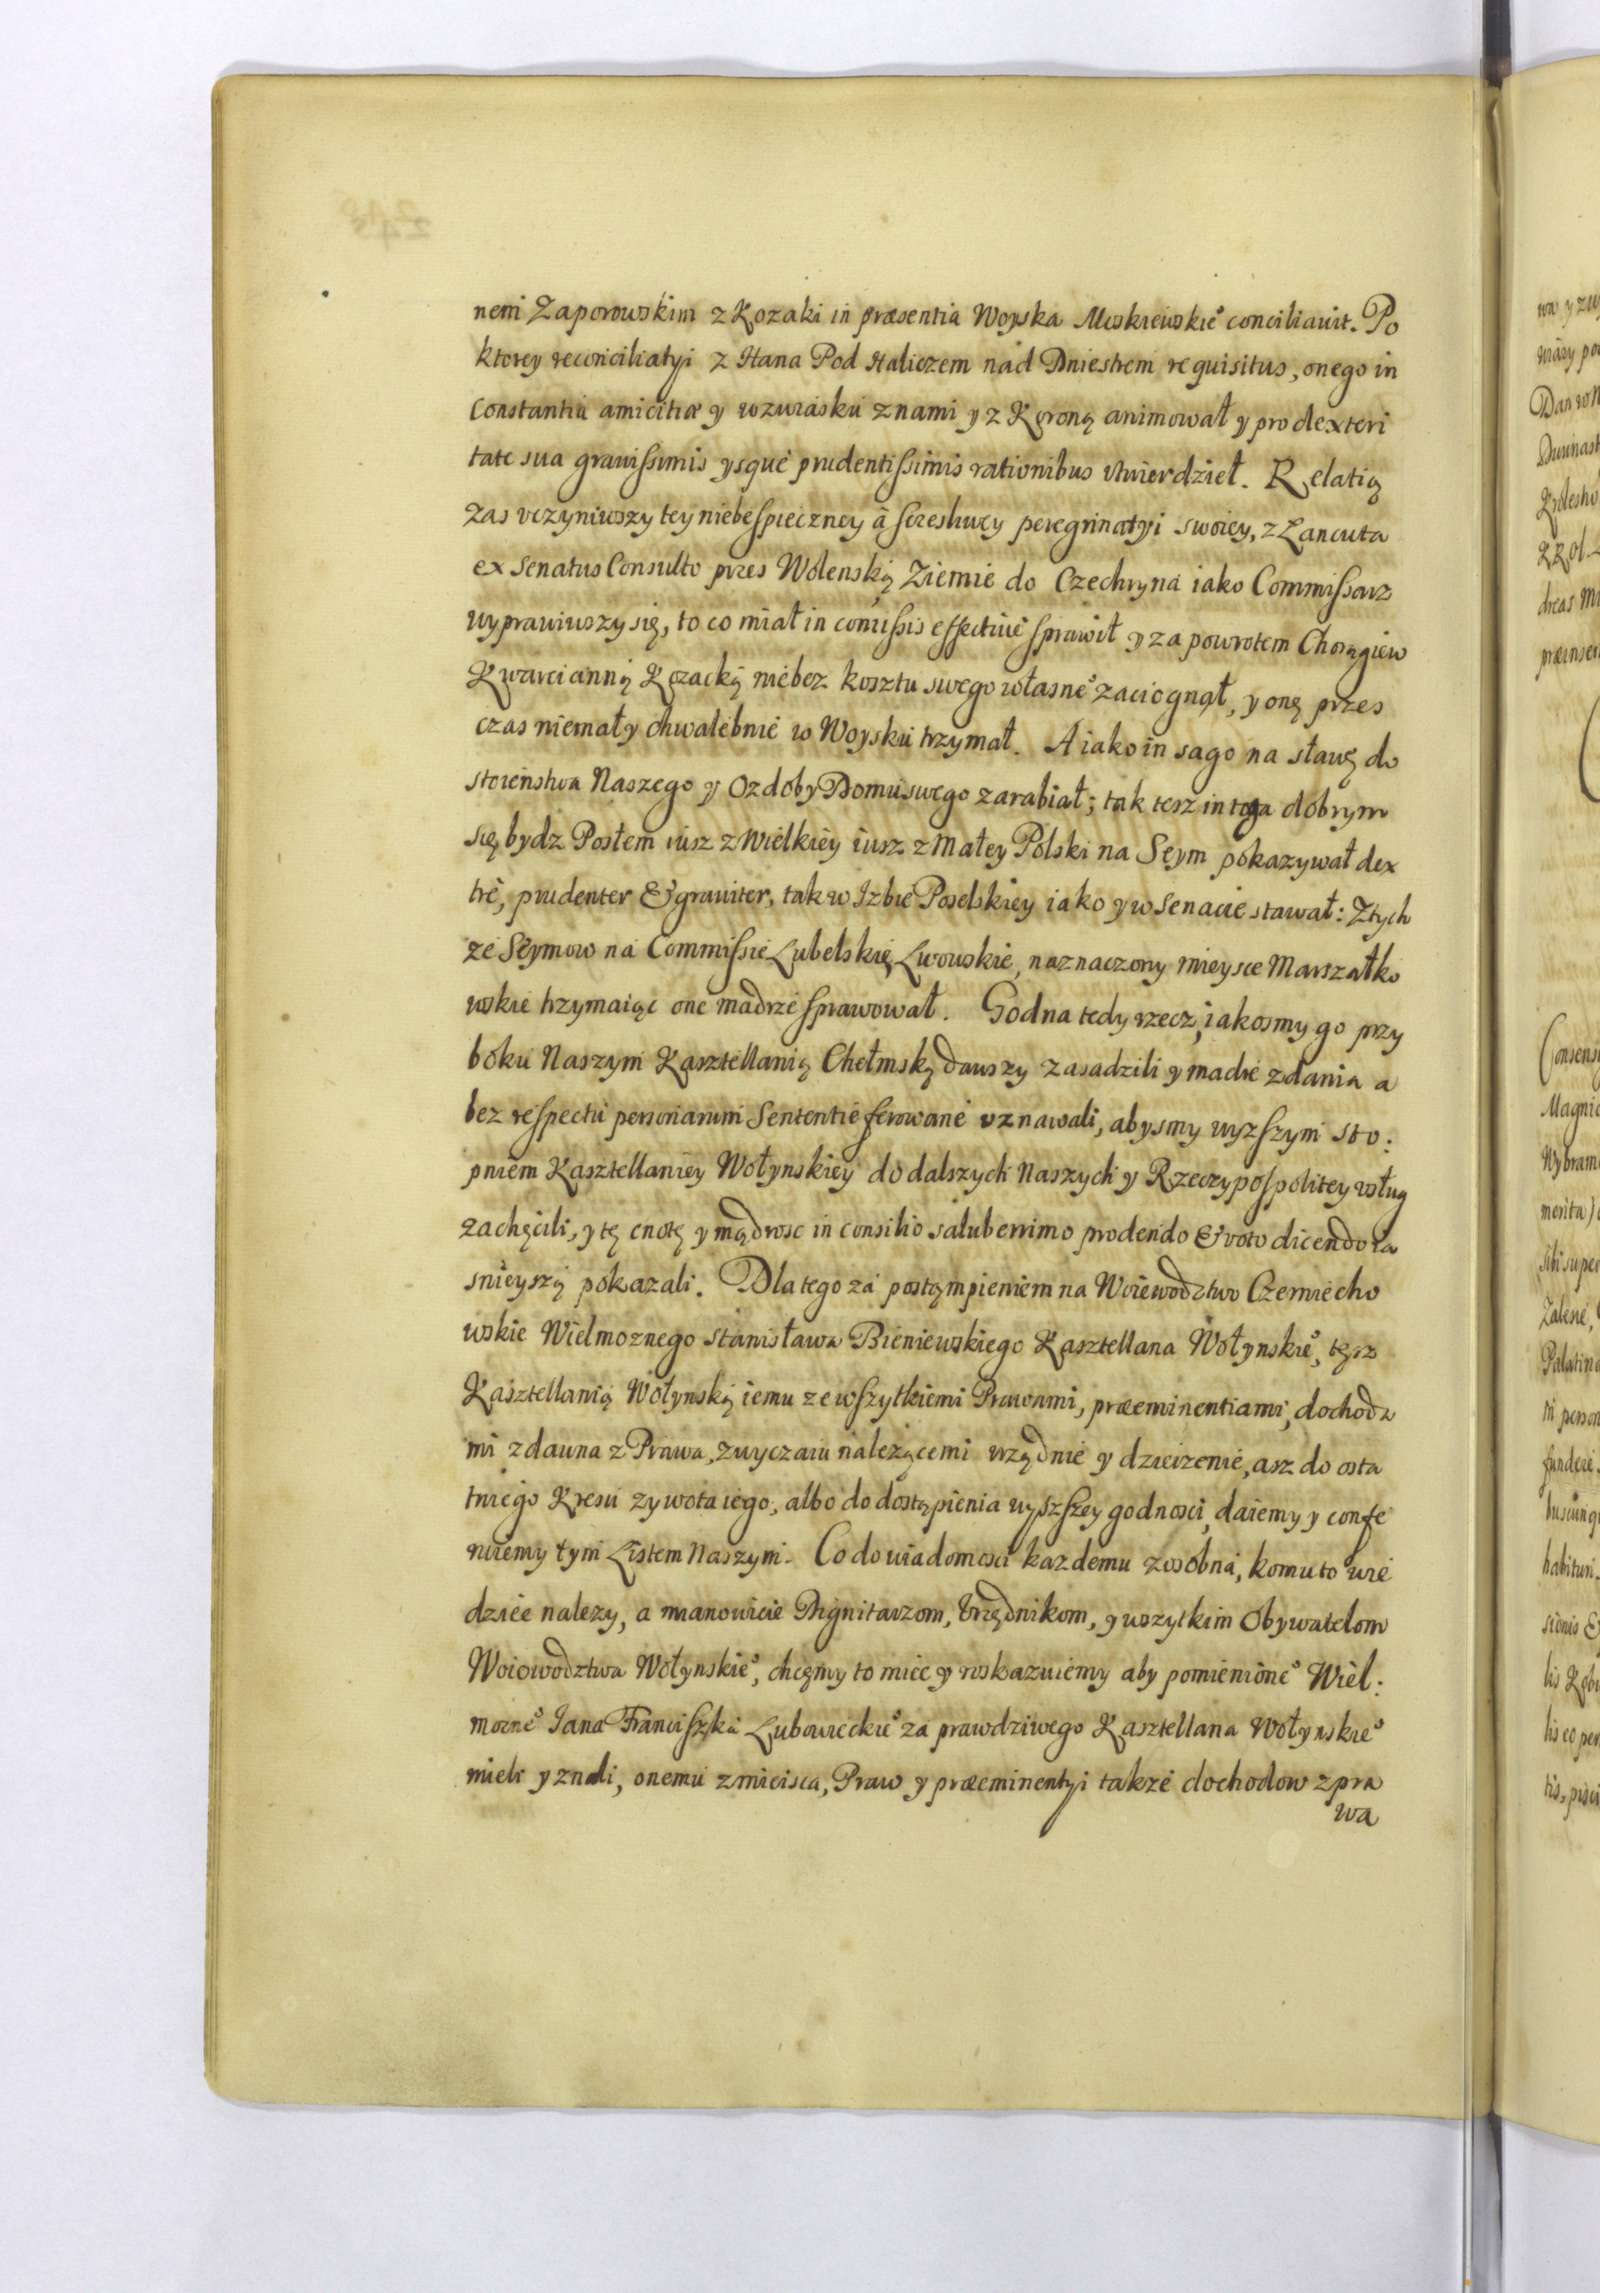 nem Zaporowskim z Kozaki in præsentia Woyska Moskiewskie° conciliavit. Po
ktorey reconciliatyi z Hana Pod Haliczem nad Dniestrem requisitus, onego in
Constantia amicitiæ y wzwiasku znami y z Koroną animował y pro dexteri
tate sua gravissimis ysque prudentissimis rationibus utwierdzieł. Relatią
zas uczyniwszy tey niebespieczney à sczesliwey peregrinatyi swoiey, z Łancuta
ex Senatus Consulto przes Wolenską Ziemie do Czechryna iako Commissarz
wyprawiwszy się, to co miał in comissis effective sprawił y za powrotem Chorągiew
Kwarcianną Kozacką niebez kosztu swego własne° zaciognął, y onę przes
czas niemały chwalebnie w Woysku trzymał. A iako in sago na sławę do
stoieństwa Naszego y Ozdoby Domu swego zarabiał; tak tesz in toga dobrym
się bydz Posłem iusz z Wielkiey iusz z Małey Polski na Seym pokazywał dex
tre, prudenter & graviter, tak w Izbie Poselskiey iako y w Senacie stawał: Ztych
ze Seymow na Commissie Lubelskię Lwowskie, naznaczony mieysce Marszałko
wskie trzymaiąc one madrze sprawował. Godna tedy rzecz, iakosmy go przy
boku Naszym Kasztellanią Chełmską dawszy zasadzili y madre zdania a
bez respectu personarum Sententie ferowane uznawali, abysmy wyzszym sto:
pniem Kasztellaniey Wołynskiey do dalszych Naszych y Rzeczypospolitey usług
zachęcili, y tę cnotę y mądrosc in consilio saluberrimo prodendo & voto dicendo ia
snieyszą pokazali. Dla tego za postąmpieniem na Woiewodztwo Czerniecho
wskie Wielmoznego Stanisława Bieniewskiego Kasztellana Wołynskie°, tęsz
Kasztellanią Wołynską iemu ze wszytkiemi Prawami, præeminentiami, dochoda
mi zdawna z Prawa, zwyczaiu należącemi urzędnie y dzierżenie, asz do osta
tniego Kresu zywota iego, albo do dostąpienia wyszszey godnosci, daiemy y confe
ruiemy tym Listem Naszym. Co do wiadomosci kazdemu zosobna, komu to wie
dziee nalezy, a mianowicie Dignitarzom, Urzędnikom, y wszytkim Obywatelom
Woiowodztwa Wołynskie°, chcęmy to miee y roskazuiemy aby pomienione° Wiel:
mozne° Jana Franciszka Lubowieckie° za prawdziwego Kasztellana Wołynskie°
mieli y znali, onemu z mieisca, Praw y præeminentyi takze dochodow z pra
wa